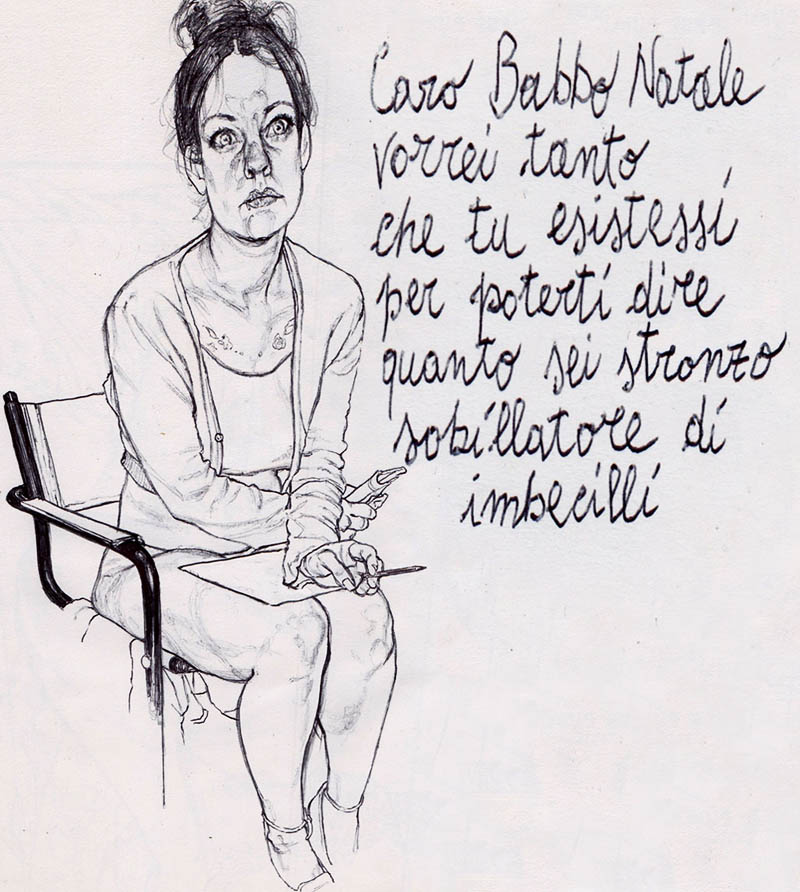 Caro Babbo Natale
vorrei tanto
che tu esistessi
per poterti dire
quanto sei stronzo
sobillatore di
imbecilli